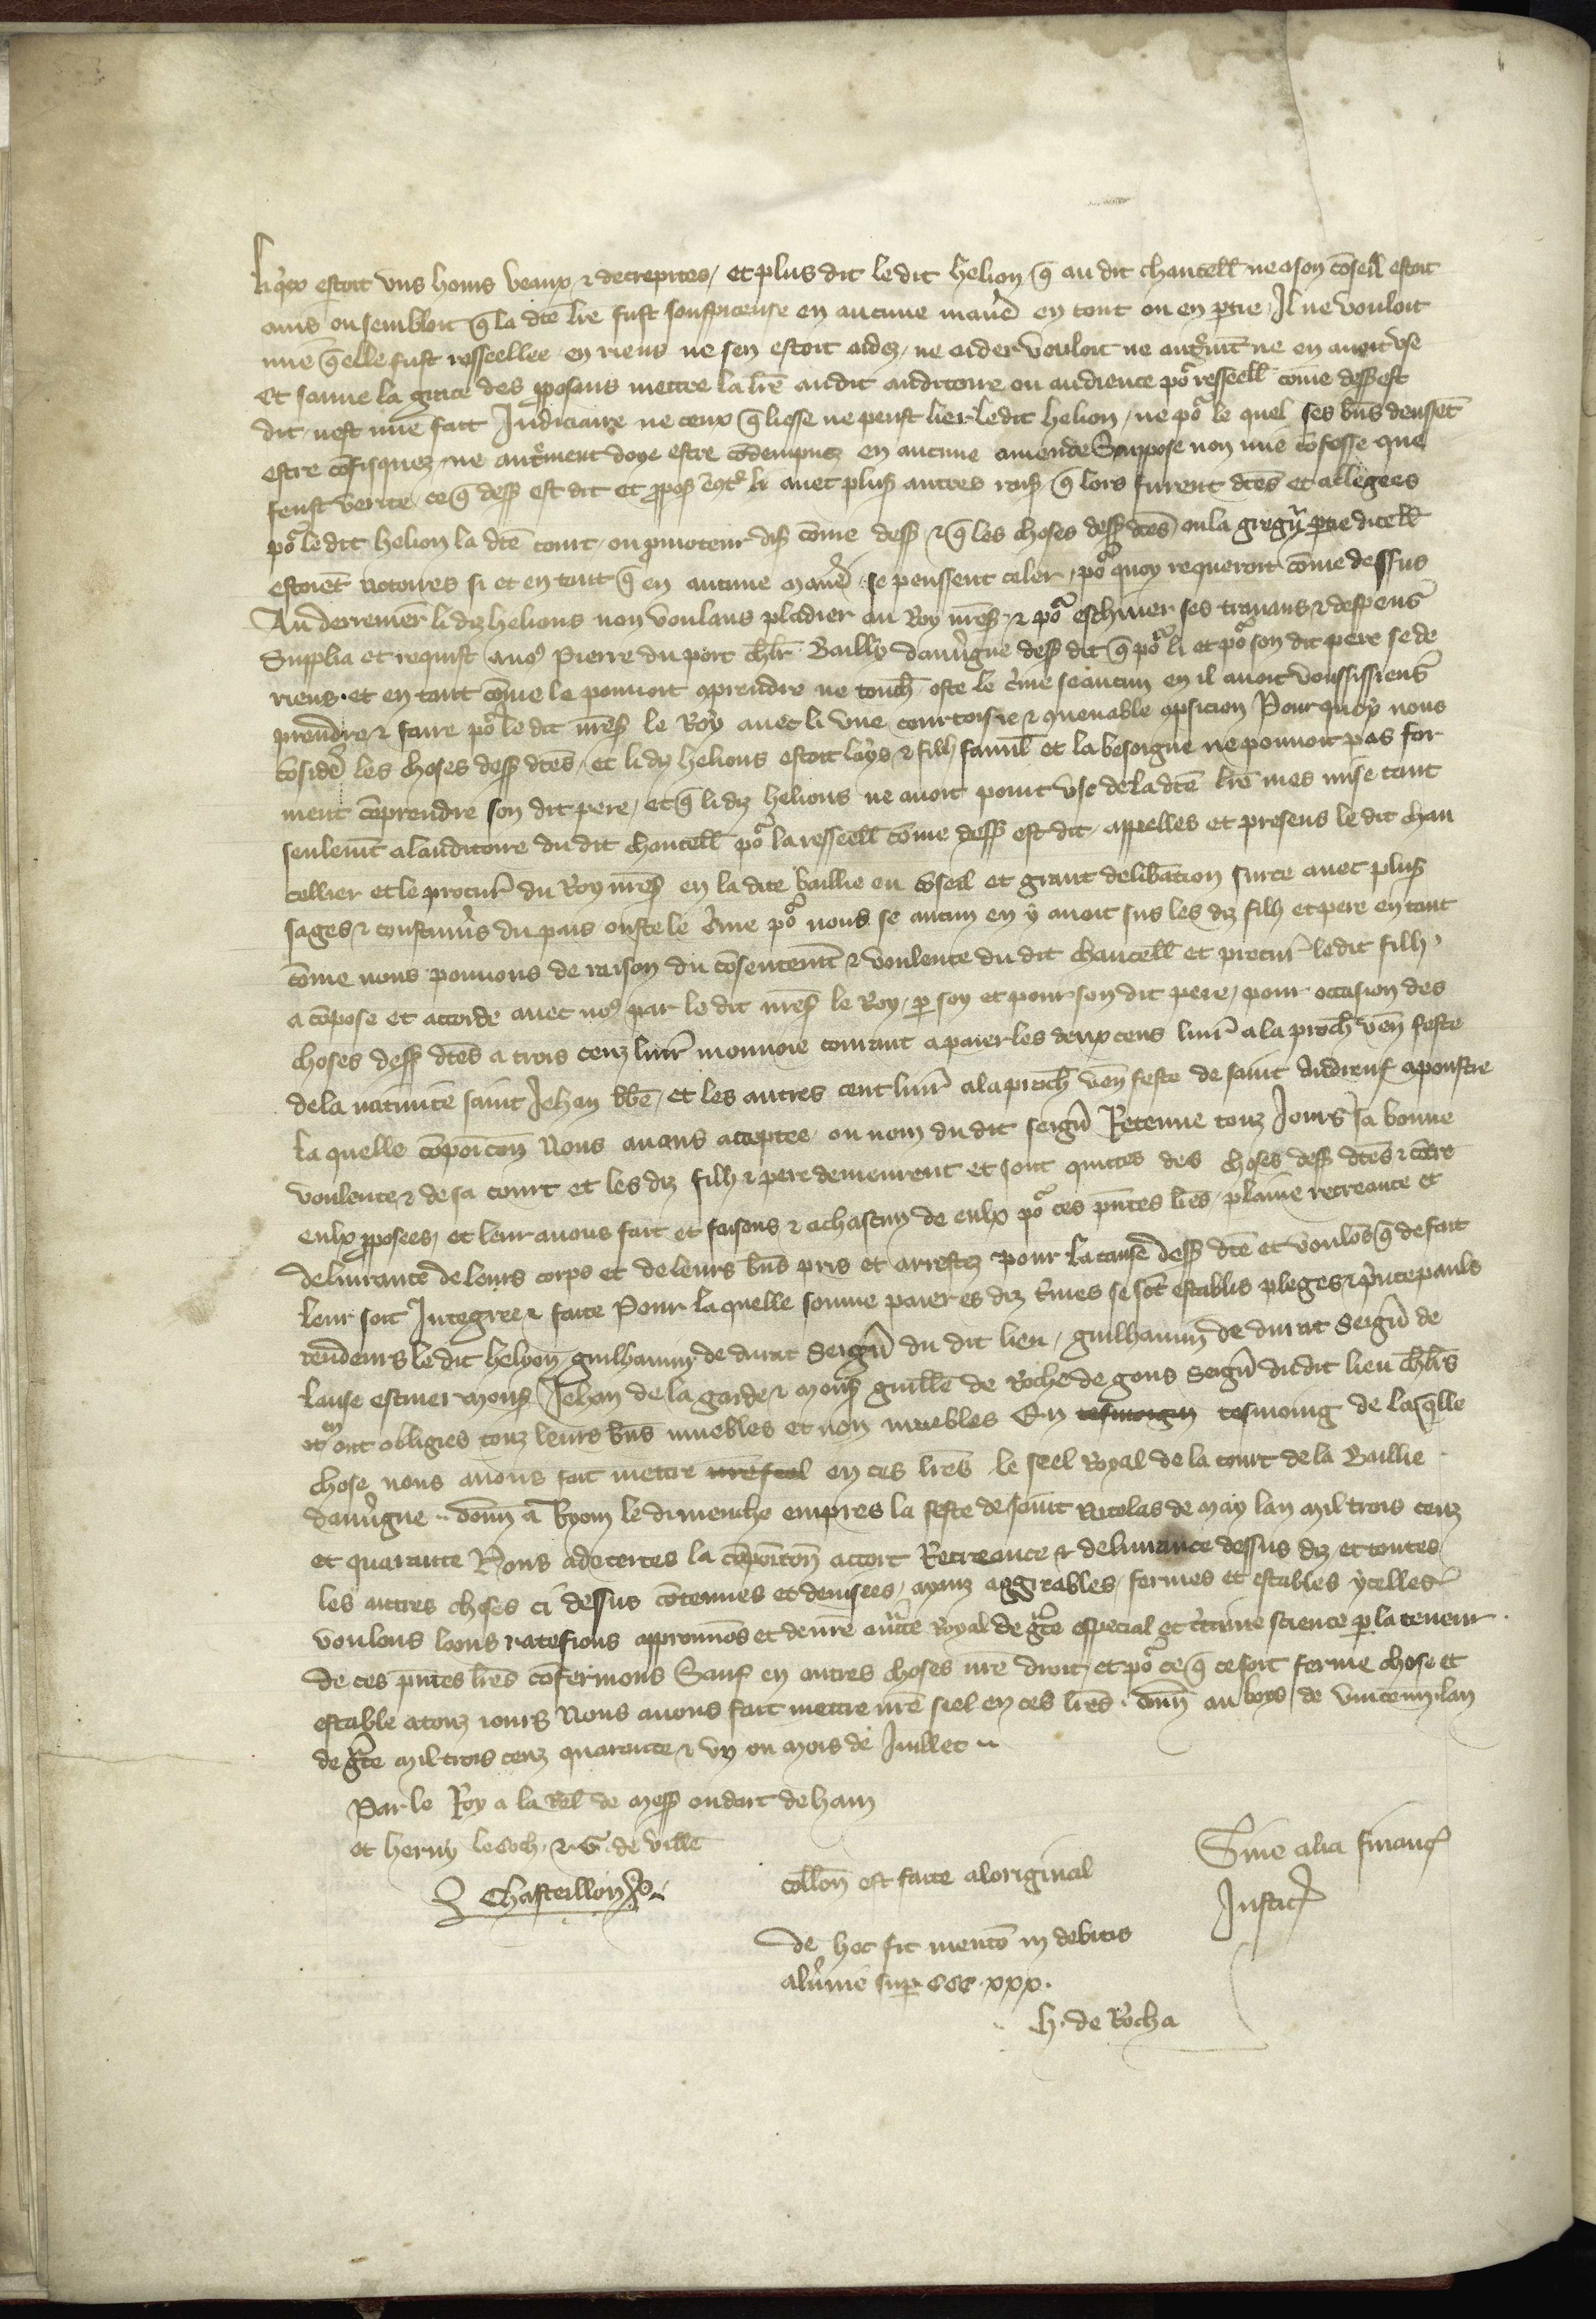 estoit uns homs veaux & decrepites / et plus dit ledit helion q̄ au dit chancell̄ ne a son cōseil estoit
avis ou sembloit q̄ la dc̄e lr̄e fust souspiceuse en aucune manīe en tout ou en ptie / Il ne vouloit
mie q̄ elle fust resseellee en riens ne sen estoit aidez / ne aider vouloit ne ne en avoit use
Et sauve la grace des pposans mettre la lr̄e au dit auditoire ou audience por resseell̄ cōme dess est
dit / nest mie fait Judiciaire ne ceux q̄ ne peust lier ledit helion / ne por le quel ses bn̄s deussēt
estre cōfisquez / ne autrmēt doye estre cōdempnez en aucune amende Suppose non mie cōfesse que
feust verite ce q̄ dess est dit et ppos cōtr li avec plus autres rais q̄ lors furent dc̄es et allegees
por ledit helion la dc̄e court / ou pmoteur dis cōme dess & q̄ les choses dess dc̄es / ou la gregn̄ ptie dicell̄
estoiēt notoires si et en tant q̄ en aucune manīe se peussent celer / por quoy requeroit cōme dessus
Au derrenier li diz helions non voulans pladier au Roy nr̄es & por eschiver ses travaus & despens
Supplia et requist a nos Pierre du port chl̄r Bailly dauv̄gne dess dit q̄ por li et por son dit pere se de
riens et en tant cōme le povoit cprendre ne touch̄ / oste le c̄me se aucun en il avoit voussissiens
prendre & faire por le dit nr̄es le Roy avec li une courtoisie & cvenable cpsicion Pour quoy nous
cōsidē les choses dess dc̄es / et li dy helions estoit loys & filh famil̄ et la besoigne ne povoit pas for
ment cōprendre son dit pere / et q̄ li diz helions ne avoit point use de la dc̄e lr̄e mes mise tant
seulemt a lauditoire du dit chancell̄ por la resseell̄ cōme dess est dit / appelles et presens le dit chan
cellier et le procur̄ du Roy nr̄es en la dite baillie eu cōseil et grant delib̄ation surce avec plus
sages & coustum̄s du pais ouste le c̄me por nous se aucun en y avoit sus les diz filh et pere en tant
cōme nous povons de raison du cōsentemt & voulente du dit chancell̄ et procur̄ ledit filh
a cōpose et accorde avec nos par le dit nr̄es le Roy / p soy et pour son dit pere / pour occasion des
choses dess dc̄es a trois cenz livr̄ monnoie courant a paier les deux cens livr̄ a la proch̄ ven̄ feste
de la nativite saint Jehan bb̄e / et les autres cent livr̄ a la proch̄ ven̄ feste de saint Andrieuf apoustre
la quelle cōpoic̄on Nous avans acceptee / ou nom du dit seign̄ Retenue touz Jours sa bonne
voulente & de sa court et les diz filh & pere demeurent et sont quittes des choses dess dc̄es & cōtre
eulx pposees / et leur avons fait et faisons & a chascun de eulx por ces pn̄tes lr̄es / plaine recreance et
delivrance de leurs corps et de leurs bn̄s pris et arrestez pour la cause dess dc̄e et voulōs q̄ de fait
leur soit Integree & faite Pour la quelle somme paier es diz t̄mes se sōt establis pleges & pr̄ncepauls
rendeurs ledit helyon / guilhaumy de durat Seign̄ du dit lieu / guilhaumy de durat Seign̄ de
lause estiver mons Jehan de la garde & mons guill̄e de Roche de gons Seign̄ dudit lieu chl̄rs
et en ont obligies touz leurs bn̄s muebles et non muebles En tesmoign tesmoing de la qlle
chose nous avons fait mettre nr̄e seel en ces lr̄es le seel Royal de la court de la Baillie
dauv̄gne. Donn̄ a Ryom le dimenche empres la feste de saint Nicolas de may lan mil trois cenz
et quarante Nous adecertes la cōpoic̄on accort Recreance & delivrance dessus diz et toutes
les autres choses ci dessus cōtenues et devisees / ayanz aggreables / fermes et estables ycelles
voulons loons ratefions approuvōs et de nr̄e auct̄te Royal de grc̄e especial et c̄taine science p la teneur
de ces pn̄tes lr̄es cōfermons Sauf en autres choses nr̄e droit / et por ce q̄ ce soit ferme chose et
estable a touz jours Nous avons fait mettre nr̄e seel en ces lr̄es. Donn̄ au boys de vincenn̄. lan
de grc̄e mil trois cenz quarante & un ou mois de Juillet
Par le Roy a la rel̄ de mess oudart de ham
et henry & G. de ville
Chasteillon
coll̄on est faite a loriginal
de hoc fit mentō in debitis
alv̄nie sup CCC. xxx.
h. de Rocha
Sine alia financ̄
Justic̄